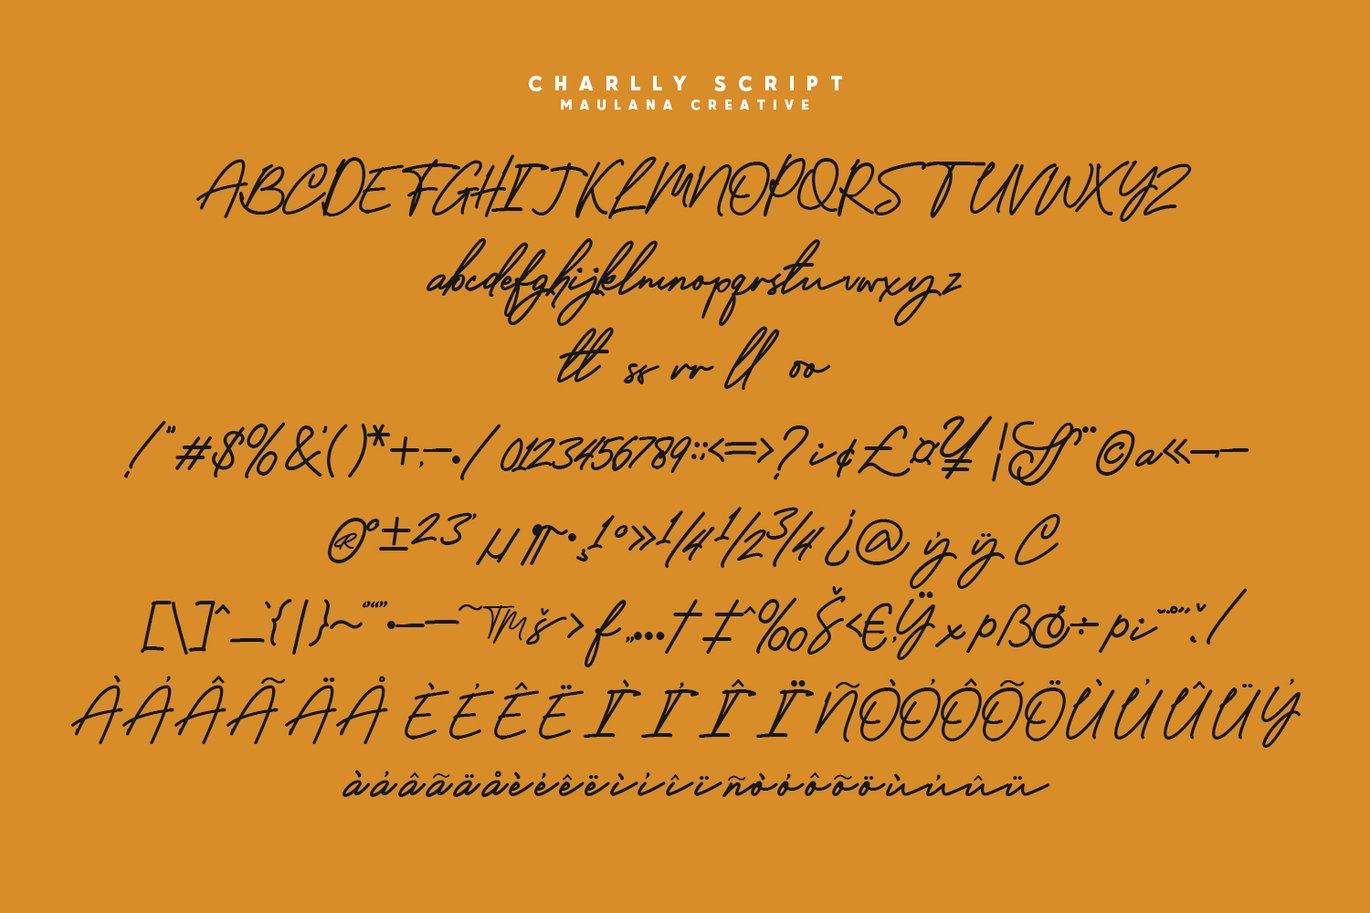 CHARLLY SCRIPT
MAULANA CREATIVE
ABCDEFGHIJKLMNOPQRSTUVWXYZ
abcdefghijklmnopqrstuvwxyz
tt ss rr ll oo
!"#$%&'()*+,-./ 0123456789:;<=>?i¢£¤¥¦§¨©a«¬-
®°±23'µ¶·¸1º»1/41/23/4¿@ ẏ ÿ C
[\]^_`{|}~‘’“”•–—~™š>f„...†‡^‰Š<€¡Ÿxpß÷pi˘˙˚˝ˇ/
ÀÁÂÃÄÅ ÈÉÊË ÌÍÎÏ ÑÒÓÔÕÖÙÚÛÜÝ
àáâãäåèéêëìíîïñòóôõöùúûü